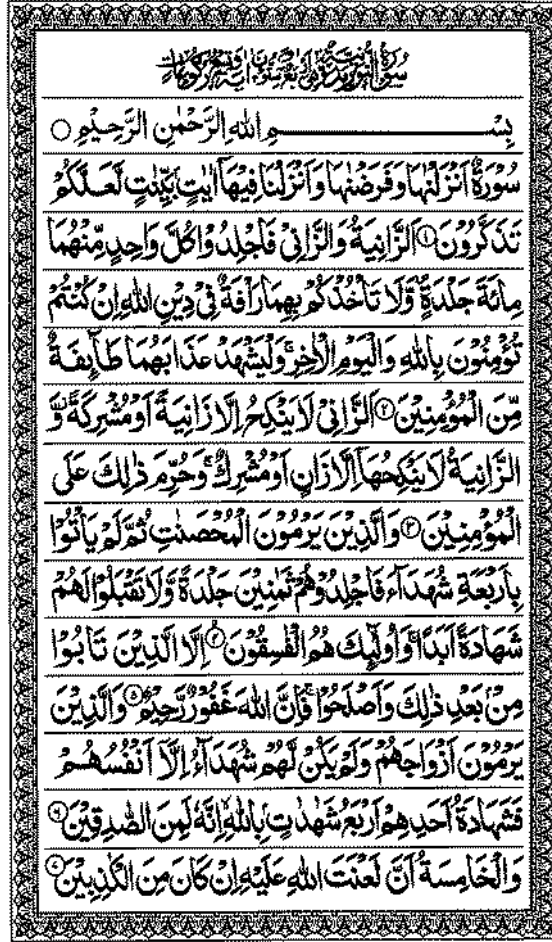 سُوْرَةُ النُّوْرِ مَدَنِيَّةٌ وَّهِيَ اَرْبَعٌ وَّسِتُّوْنَ اٰيَةً وَّتِسْعُ رُكُوْعَاتٍ
بِسْمِ اللهِ الرَّحْمٰنِ الرَّحِيْمِ ○
سُوْرَةٌ اَنْزَلْنٰهَا وَفَرَضْنٰهَا وَاَنْزَلْنَا فِيْهَاۤ اٰيٰتٍۭ بَيِّنٰتٍ لَّعَلَّكُمْ
تَذَكَّرُوْنَ ۝۱ اَلزَّانِيَةُ وَالزَّانِيْ فَاجْلِدُوْا كُلَّ وَاحِدٍ مِّنْهُمَا
مِائَةَ جَلْدَةٍ ۪ وَّلَا تَاْخُذْكُمْ بِهِمَا رَاْفَةٌ فِيْ دِيْنِ اللهِ اِنْ كُنْتُمْ
تُؤْمِنُوْنَ بِاللهِ وَالْيَوْمِ الْاٰخِرِ ۚ وَلْيَشْهَدْ عَذَابَهُمَا طَآىِٕفَةٌ
مِّنَ الْمُؤْمِنِيْنَ ۝۲ اَلزَّانِيْ لَا يَنْكِحُ اِلَّا زَانِيَةً اَوْ مُشْرِكَةً ؗ وَّ
الزَّانِيَةُ لَا يَنْكِحُهَاۤ اِلَّا زَانٍ اَوْ مُشْرِكٌ ۚ وَحُرِّمَ ذٰلِكَ عَلَى
الْمُؤْمِنِيْنَ ۝۳ وَالَّذِيْنَ يَرْمُوْنَ الْمُحْصَنٰتِ ثُمَّ لَمْ يَاْتُوْا
بِاَرْبَعَةِ شُهَدَآءَ فَاجْلِدُوْهُمْ ثَمٰنِيْنَ جَلْدَةً وَّلَا تَقْبَلُوْا لَهُمْ
شَهَادَةً اَبَدًا ۚ وَاُولٰٓىِٕكَ هُمُ الْفٰسِقُوْنَ ۝۴ اِلَّا الَّذِيْنَ تَابُوْا
مِنْۢ بَعْدِ ذٰلِكَ وَاَصْلَحُوْا ۚ فَاِنَّ اللهَ غَفُوْرٌ رَّحِيْمٌ ۝۵ وَالَّذِيْنَ
يَرْمُوْنَ اَزْوَاجَهُمْ وَلَمْ يَكُنْ لَّهُمْ شُهَدَآءُ اِلَّاۤ اَنْفُسُهُمْ
فَشَهَادَةُ اَحَدِهِمْ اَرْبَعُ شَهٰدٰتٍۭ بِاللهِ ۙ اِنَّهٗ لَمِنَ الصّٰدِقِيْنَ ۝۶
وَالْخَامِسَةُ اَنَّ لَعْنَتَ اللهِ عَلَيْهِ اِنْ كَانَ مِنَ الْكٰذِبِيْنَ ۝۷